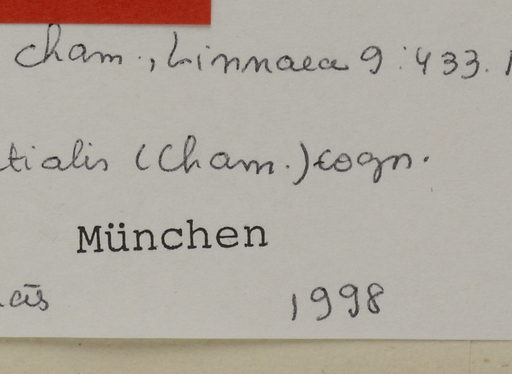 Cham., Linnaea 9:433.
tialis (Cham.) Cogn.
München
1998